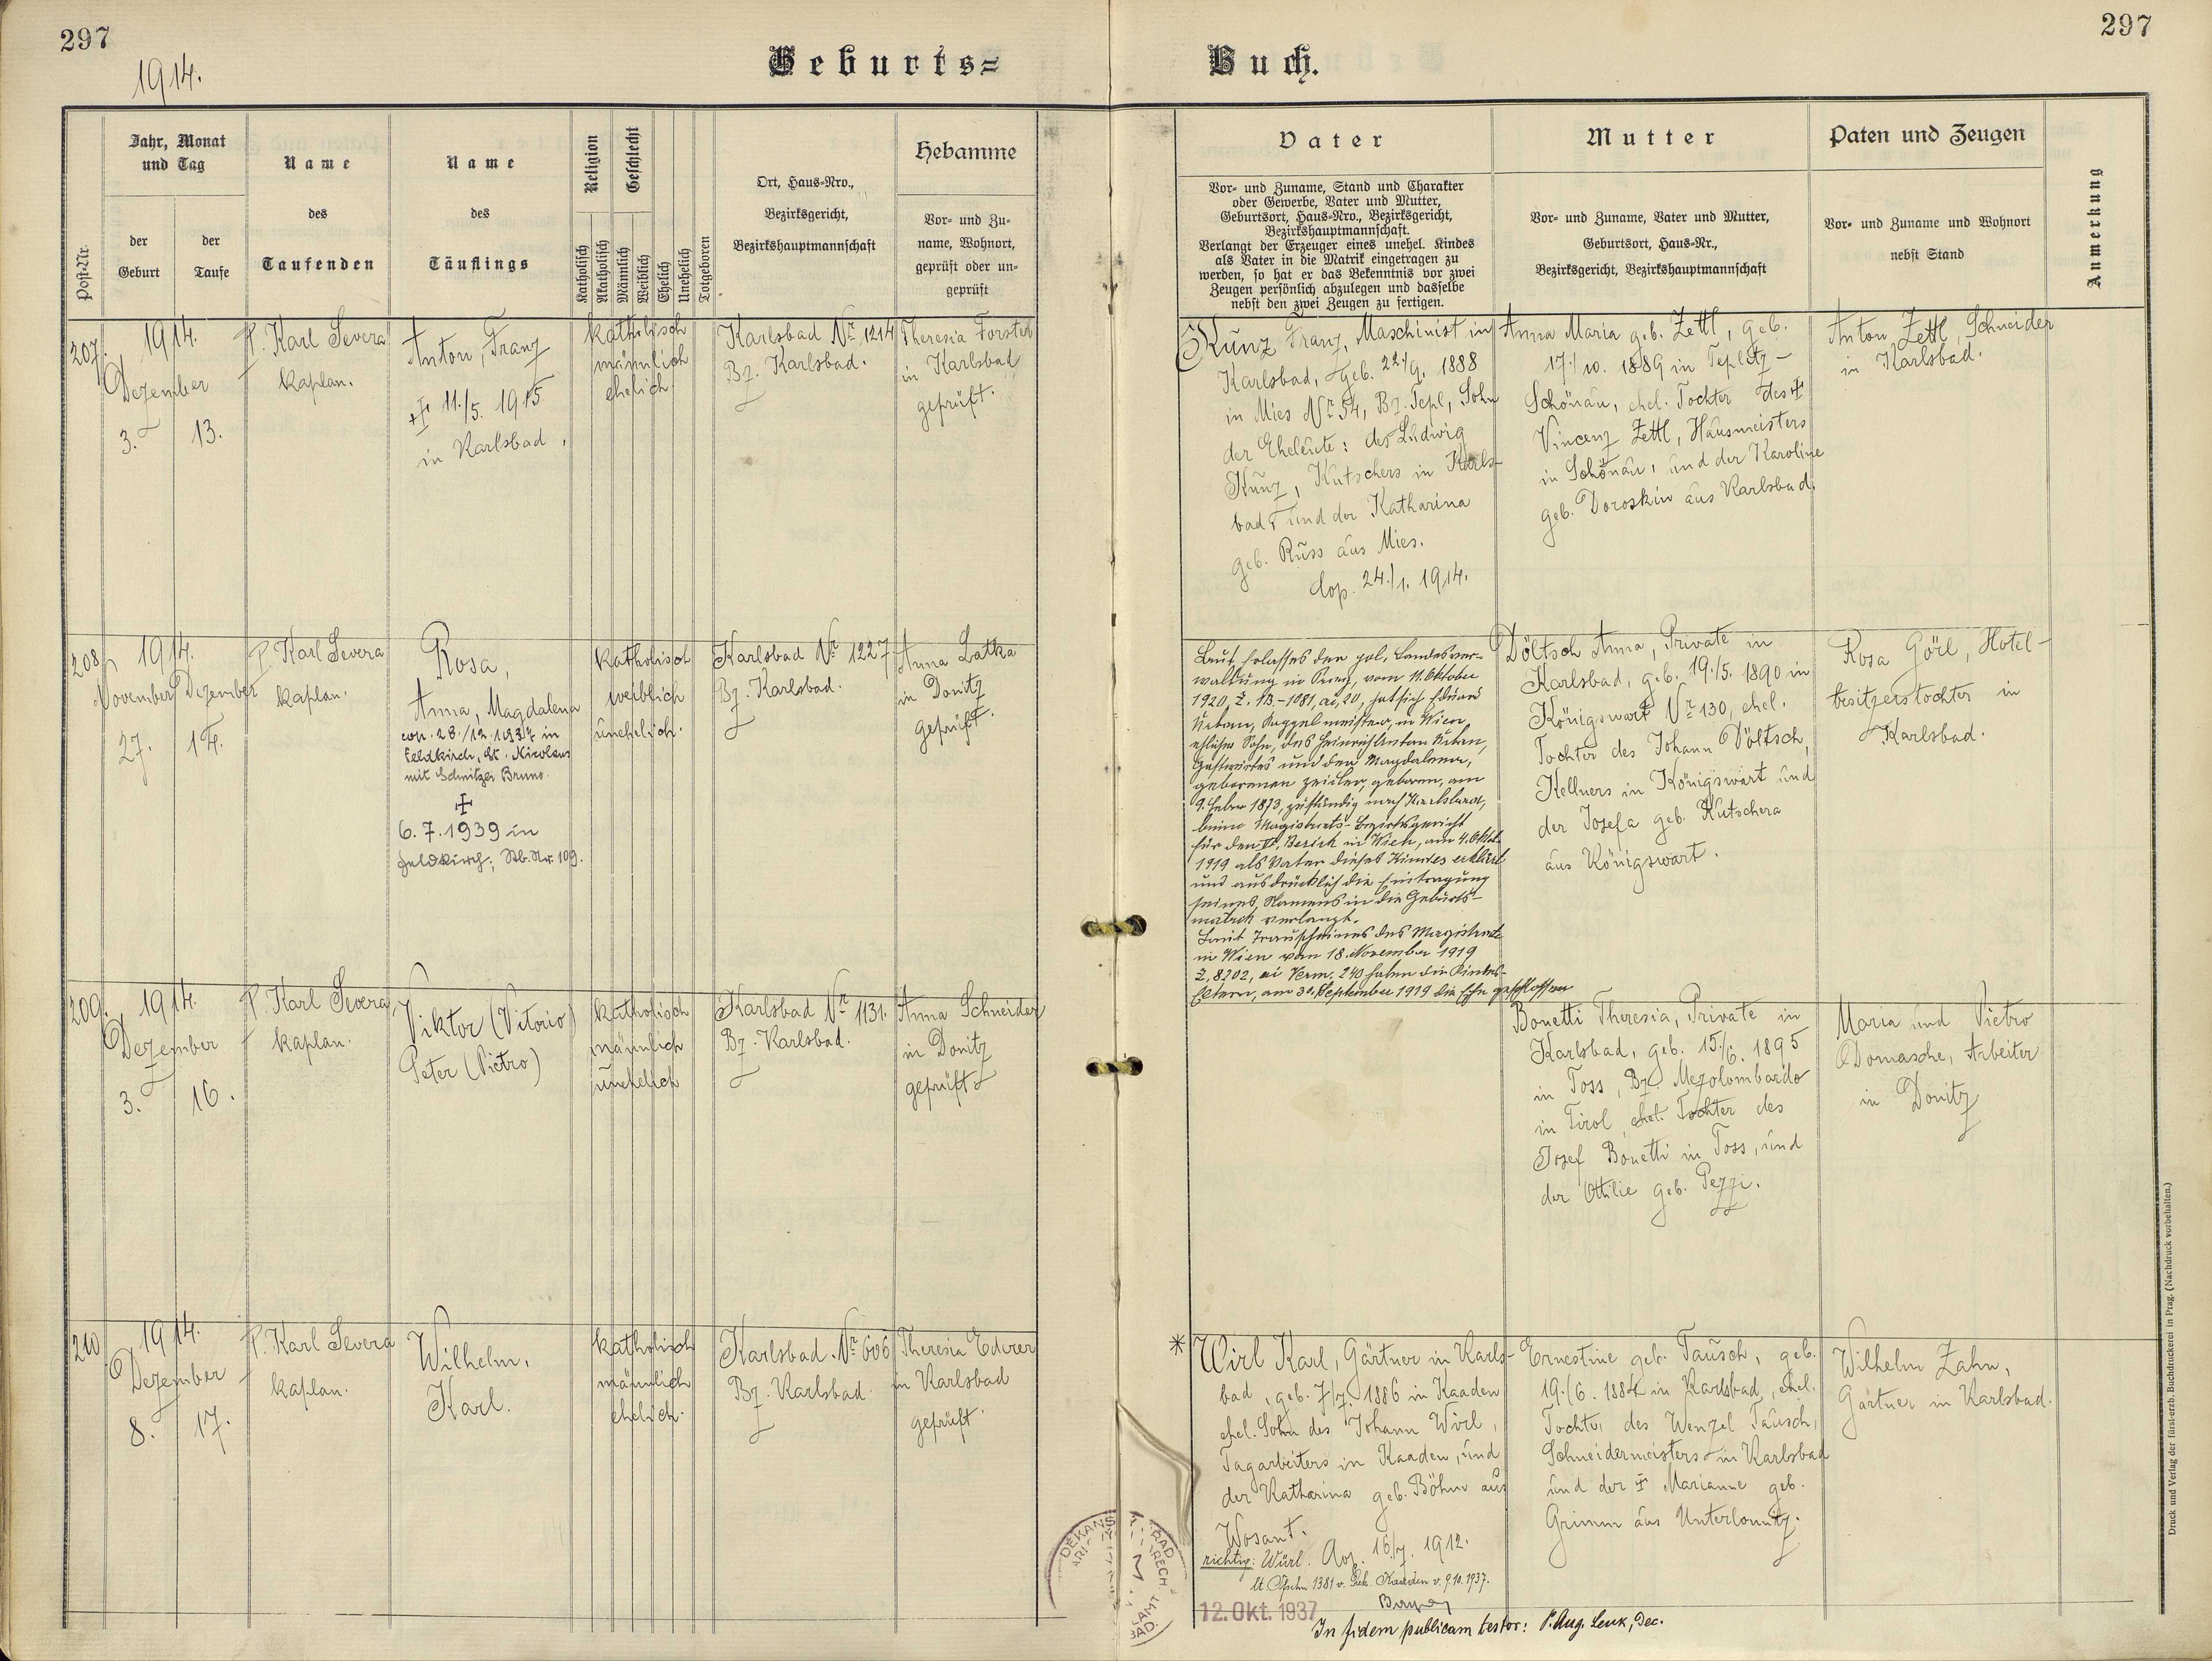 297
297
1914.
Geburts=
Buch.
Post-Nr.
Jahr, Monat
und Tag
der
Geburt
der
Taufe
Name
des
Taufenden
Name
des
Täuflings
Religion
Geschlecht
Katholisch
Akatholisch
Männlich
Weiblich
Ehelich
Unehelich
Totgeboren
Ort, Haus=Nro.,
Bezirksgericht,
Bezirkshauptmannschaft
Hebamme
Vor= und Zu=
name, Wohnort,
geprüft oder un=
geprüft
Vater
Vor= und Zuname, Stand und Charakter
oder Gewerbe, Vater und Mutter,
Geburtsort, Haus=Nro., Bezirksgericht,
Bezirkshauptmannschaft.
Verlangt der Erzeuger eines unehel. Kindes
als Vater in die Matrik eingetragen zu
werden, so hat er das Bekenntnis vor zwei
Zeugen persönlich abzulegen und dasselbe
nebst den zwei Zeugen zu fertigen.
Mutter
Vor= und Zuname, Vater und Mutter,
Geburtsort, Haus=Nr.,
Bezirksgericht, Bezirkshauptmannschaft
Paten und Zeugen
Vor= und Zuname und Wohnort
nebst Stand
Anmerkung
207.
1914.
Dezember
3. 13.
P. Karl Severa
Kaplan.
Anton, Franz
+ 11./5. 1915
in Karlsbad.
katholisch
männlich
ehelich
Karlsbad Nr. 1214
Bz. Karlsbad.
Theresia Forster
in Karlsbad
geprüft.
Kunz Franz, Maschinist in
Karlsbad, geb. 22./9. 1888
in Mies Nr. 54, Bz. Tepl, Sohn
der Eheleute: des Ludwig
Kunz, Kutschers in Karls-
bad, und der Katharina
geb. Russ aus Mies.
Cop. 24./1. 1914.
Anna Maria geb. Zettl, geb.
17./10. 1889 in Teplitz-
Schönau, ehel. Tochter des +
Vincenz Zettl, Hausmeisters
in Schönau, und der Karoline
geb. Doroskin aus Karlsbad.
Anton Zettl, Schneider
in Karlsbad.
208.
1914.
November Dezember
27. 14.
P. Karl Severa
Kaplan.
Rosa,
Anna, Magdalena
cop. 28./12. 1937 in
Feldkirch, St. Nicolaus
mit Schnitzer Bruno.
+
6.7.1939 in
Feldkirch; Stb. Nr. 109.
katholisch
weiblich
unehelich.
Karlsbad Nr. 1227
Bz. Karlsbad.
Anna Latka
in Donitz
geprüft.
Laut Erlasses der pol. Landesver-
waltung in Prag, vom 11. Oktober
1920, Z. 13.-1081, ai, 20, hat sich Eduard
Urban, Kappelmeister, in Wien,
ehlicher Sohn, des Heinrich Anton Urban,
Gastwirtes und der Magdalena,
geborenen Zeidler, geboren, am
9. Feber 1873, zuständig nach Karlsbad,
beim Magistrats-Bezirksgericht
für den VI. Bezirk in Wien, am 4. Oktob.
1919 als Vater dieses Kindes erklärt
und ausdrücklich die Eintragung
seines Namens in die Geburts-
matrik verlangt.
Laut Trauscheines des Magistrats
in Wien vom 18. November 1919
Z. 8202, ai Verm. 240 haben die Kindes-
Eltern, am 30. September 1919 die Ehe geschlossen
Döltsch Anna, Private in
Karlsbad, geb. 19./5. 1890 in
Königswart Nr. 130, ehel.
Tochter des Johann Döltsch,
Kellners in Königswart und
der Josefa geb. Kutschera
aus Königswart.
Rosa Görl, Hotel-
besitzerstochter in
Karlsbad.
209.
1914.
Dezember
3. 16.
P. Karl Severa
Kaplan.
Viktor (Vitorio)
Peter (Pietro)
katholisch
männlich
unehelich
Karlsbad Nr. 1131.
Bz. Karlsbad.
Anna Schneider
in Donitz
geprüft
Bonetti Theresia, Private in
Karlsbad, geb. 15./6. 1895
in Toss, Bz. Mezolombardo
in Tirol, ehel. Tochter des
Josef Bonetti in Toss, und
der Ottilie geb. Pezzi.
Maria und Pietro
Domasche, Arbeiter
in Donitz
210.
1914.
Dezember
8. 17.
P. Karl Severa
Kaplan.
Wilhelm,
Karl.
katholisch
männlich
ehelich.
Karlsbad Nr. 606
Bz. Karlsbad
Theresia Ederer
in Karlsbad
geprüft.
* Wirl Karl, Gärtner in Karls-
bad, geb. 7./7. 1886 in Kaaden
ehel. Sohn des Johann Wirl,
Tagarbeiters in Kaaden, und
der Katharina geb. Böhm aus
Wosant.
Cop. 16./7. 1912.
richtig: Würl.
12. Okt. 1937
In fidem publicam testor: P. Aug. Lenk, Dec.
Ernestine geb. Tausch, geb.
19./6. 1884 in Karlsbad, ehel.
Tochter des Wenzel Tausch,
Schneidermeisters in Karlsbad
und der + Marianne geb.
Grimm aus Unterlomitz.
Wilhelm Zahn,
Gärtner in Karlsbad.
Druck und Verlag der fürst-erzb. Buchdruckerei in Prag. (Nachdruck vorbehalten.)